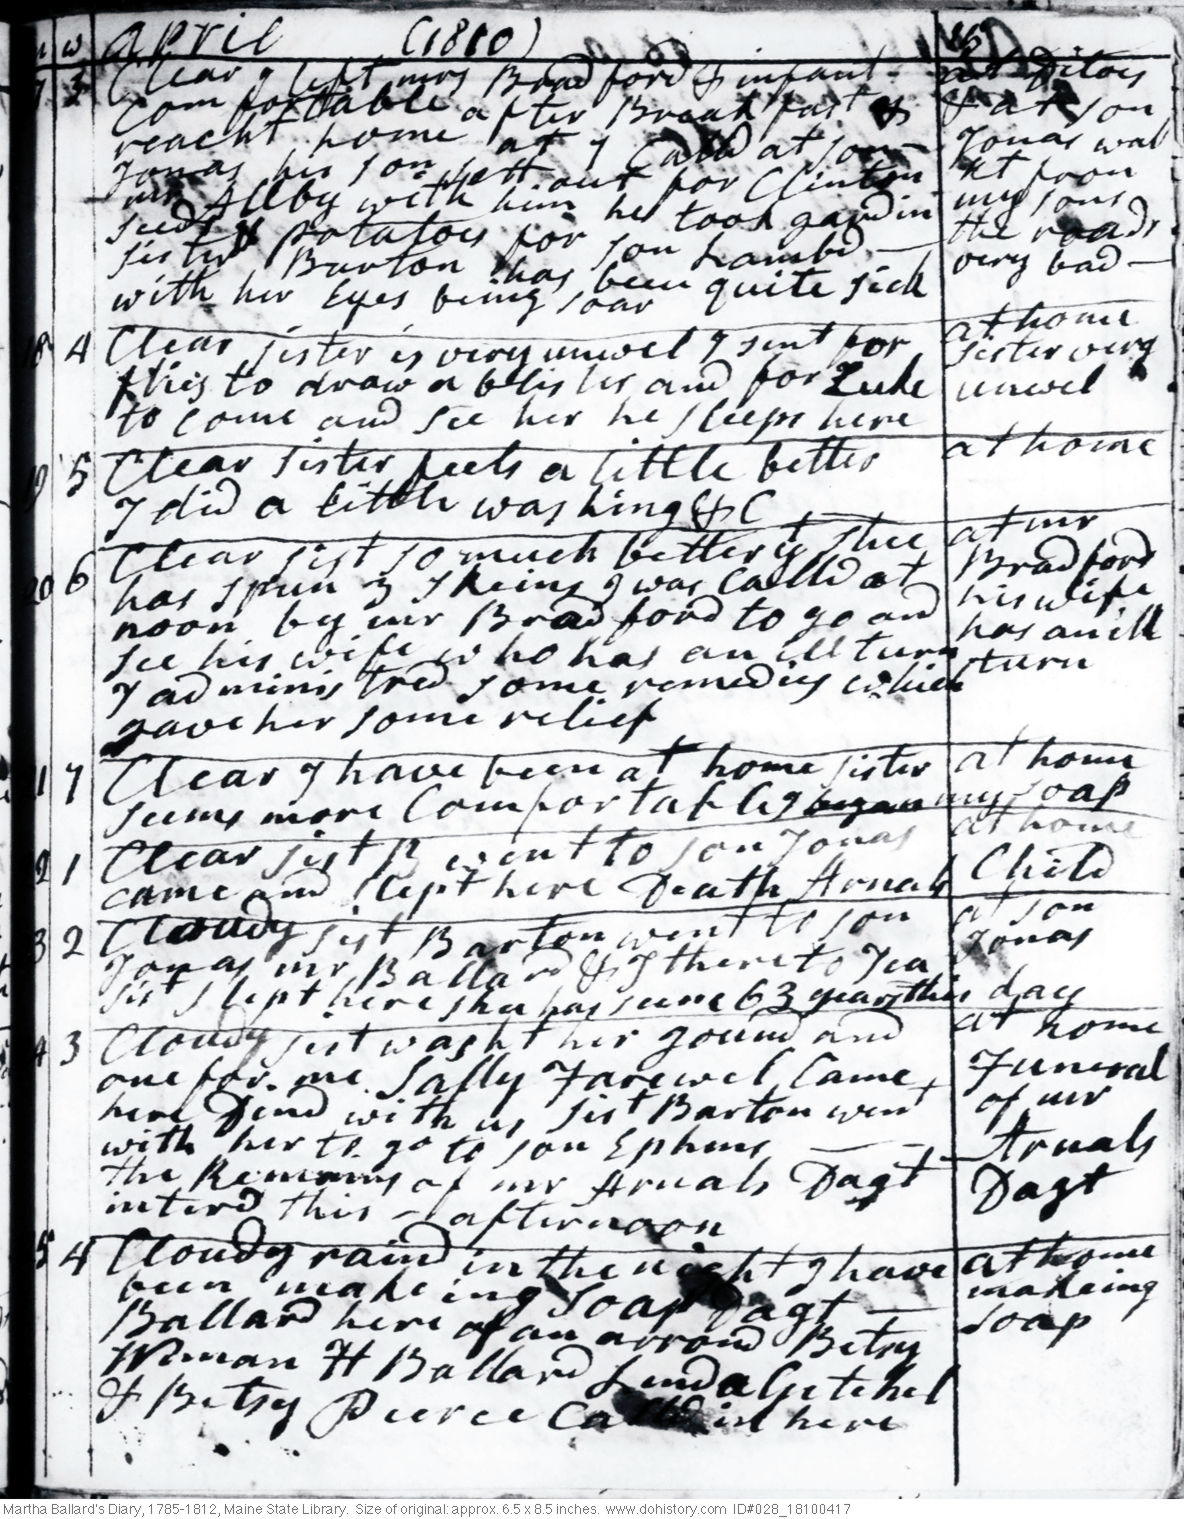 w April (1810)
7 3 Clear I left mrs Bradford & infant - at Ditoes
Comfortable after Break fast & & at son
reacht home at 7 Calld at son - Jonas wal
Jonas his son sett out for Clinton kt from
mr Allby with him he took gardin my sons
seeds & potatoes for son Lambd — the roads
sister Barton has been quite sick very bad —
with her Eyes being soar
18 4 Clear sister is very unwel I sent for at home
flies to draw a blister and for Luke sister very
to come and see her he sleeps here unwel
19 5 Clear sister feels a little better at home
I did a little washing &C
20 6 Clear sist so much better yt shee at mr
has spun 3 skeins I was Calld at Bradfords
noon by mr Bradford to go and his wife
see his wife who has an ill turn has an ill
I administred some remedies which turn
gave her some relief
1 7 Clear I have been at home sister at home
seems more Comfortable I began my soap
2 1 Clear sist B went to son Jonas at home
came and slept here Death Arnals Child
3 2 Cloudy sist Barton went to son at son
Jonas mr Ballard & I there to Tea Jonas
sist slept here shee has seene 63 years this day
4 3 Cloudy sist washt her gound and at home
one for me Sally Farewel Came Funeral
here Dind with us sist Barton went of mr
with her to go to son Ephms — - Arnals
the Remains of mr Arnals Dagt Dagt
interd this - afternoon
5 4 Cloudy raind in the night I have at home
been makeing soap Dagt — makeing
Ballard here of an arrond Betsy soap
Wiman H Ballard Linda Getchel
& Betsy Pierce Calld in here
Martha Ballard's Diary, 1785-1812, Maine State Library. Size of original: approx. 6.5 x 8.5 inches. www.dohistory.com ID#028_18100417